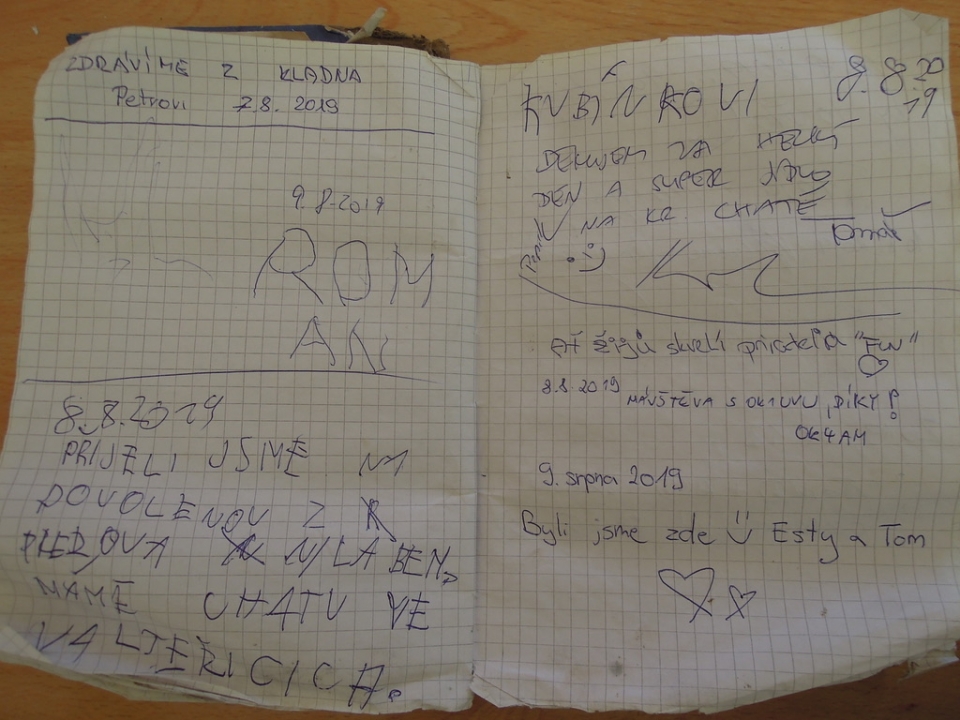 ZDRAVÍME Z KLADNA
Petrovi 7.8. 2019
9.8.2019
ROM
AN
8.8.2019
PŘIJELI JSME NA
DOVOLENOU Z
PŘEROVA N/LABEM,
MÁME CHATU VE
VALTEŘICÍCH.
KUBÍNKOVI 8.8.20
19
DEKUJEM ZA HEZKÝ
DEN A SUPER JÍDLO
NA KR. CHATĚ
:)
Ať žijů skvělí "FW"
8.8.2019 NÁVŠTĚVA S OK1UVU, DÍKY!
OK4AM
9. srpna 2019
Byli jsme zde Ü Esty a Tom